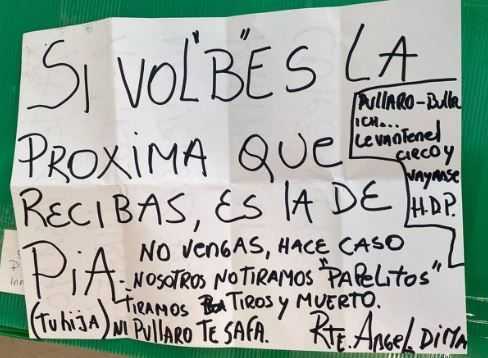 SI VOL"B"ES LA
PROXIMA QUE
RECIBAS, ES LA DE
PIA.
(Tu hija)
PULLARO - Bulla
ICH...
Levanten el
CIRCO y
VAYANSE
H.D.P.
NO VENGAS, HACE CASO
NOSOTROS NO TIRAMOS "PAPELITOS"
TIRAMOS TIROS y MUERTO.
NI PULLARO TE SAFA.
RTE. ANGEL DI MA